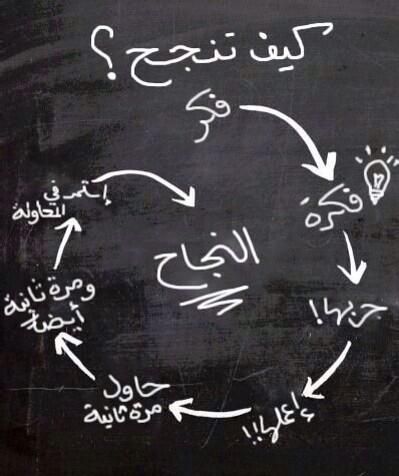 كيف تنجح؟
فكر
فكرة
جربها!
إعملها!!
حاول
مرة ثانية
ومرة ثانية
أيضاً
إستمر في
المحاولة
النجاح